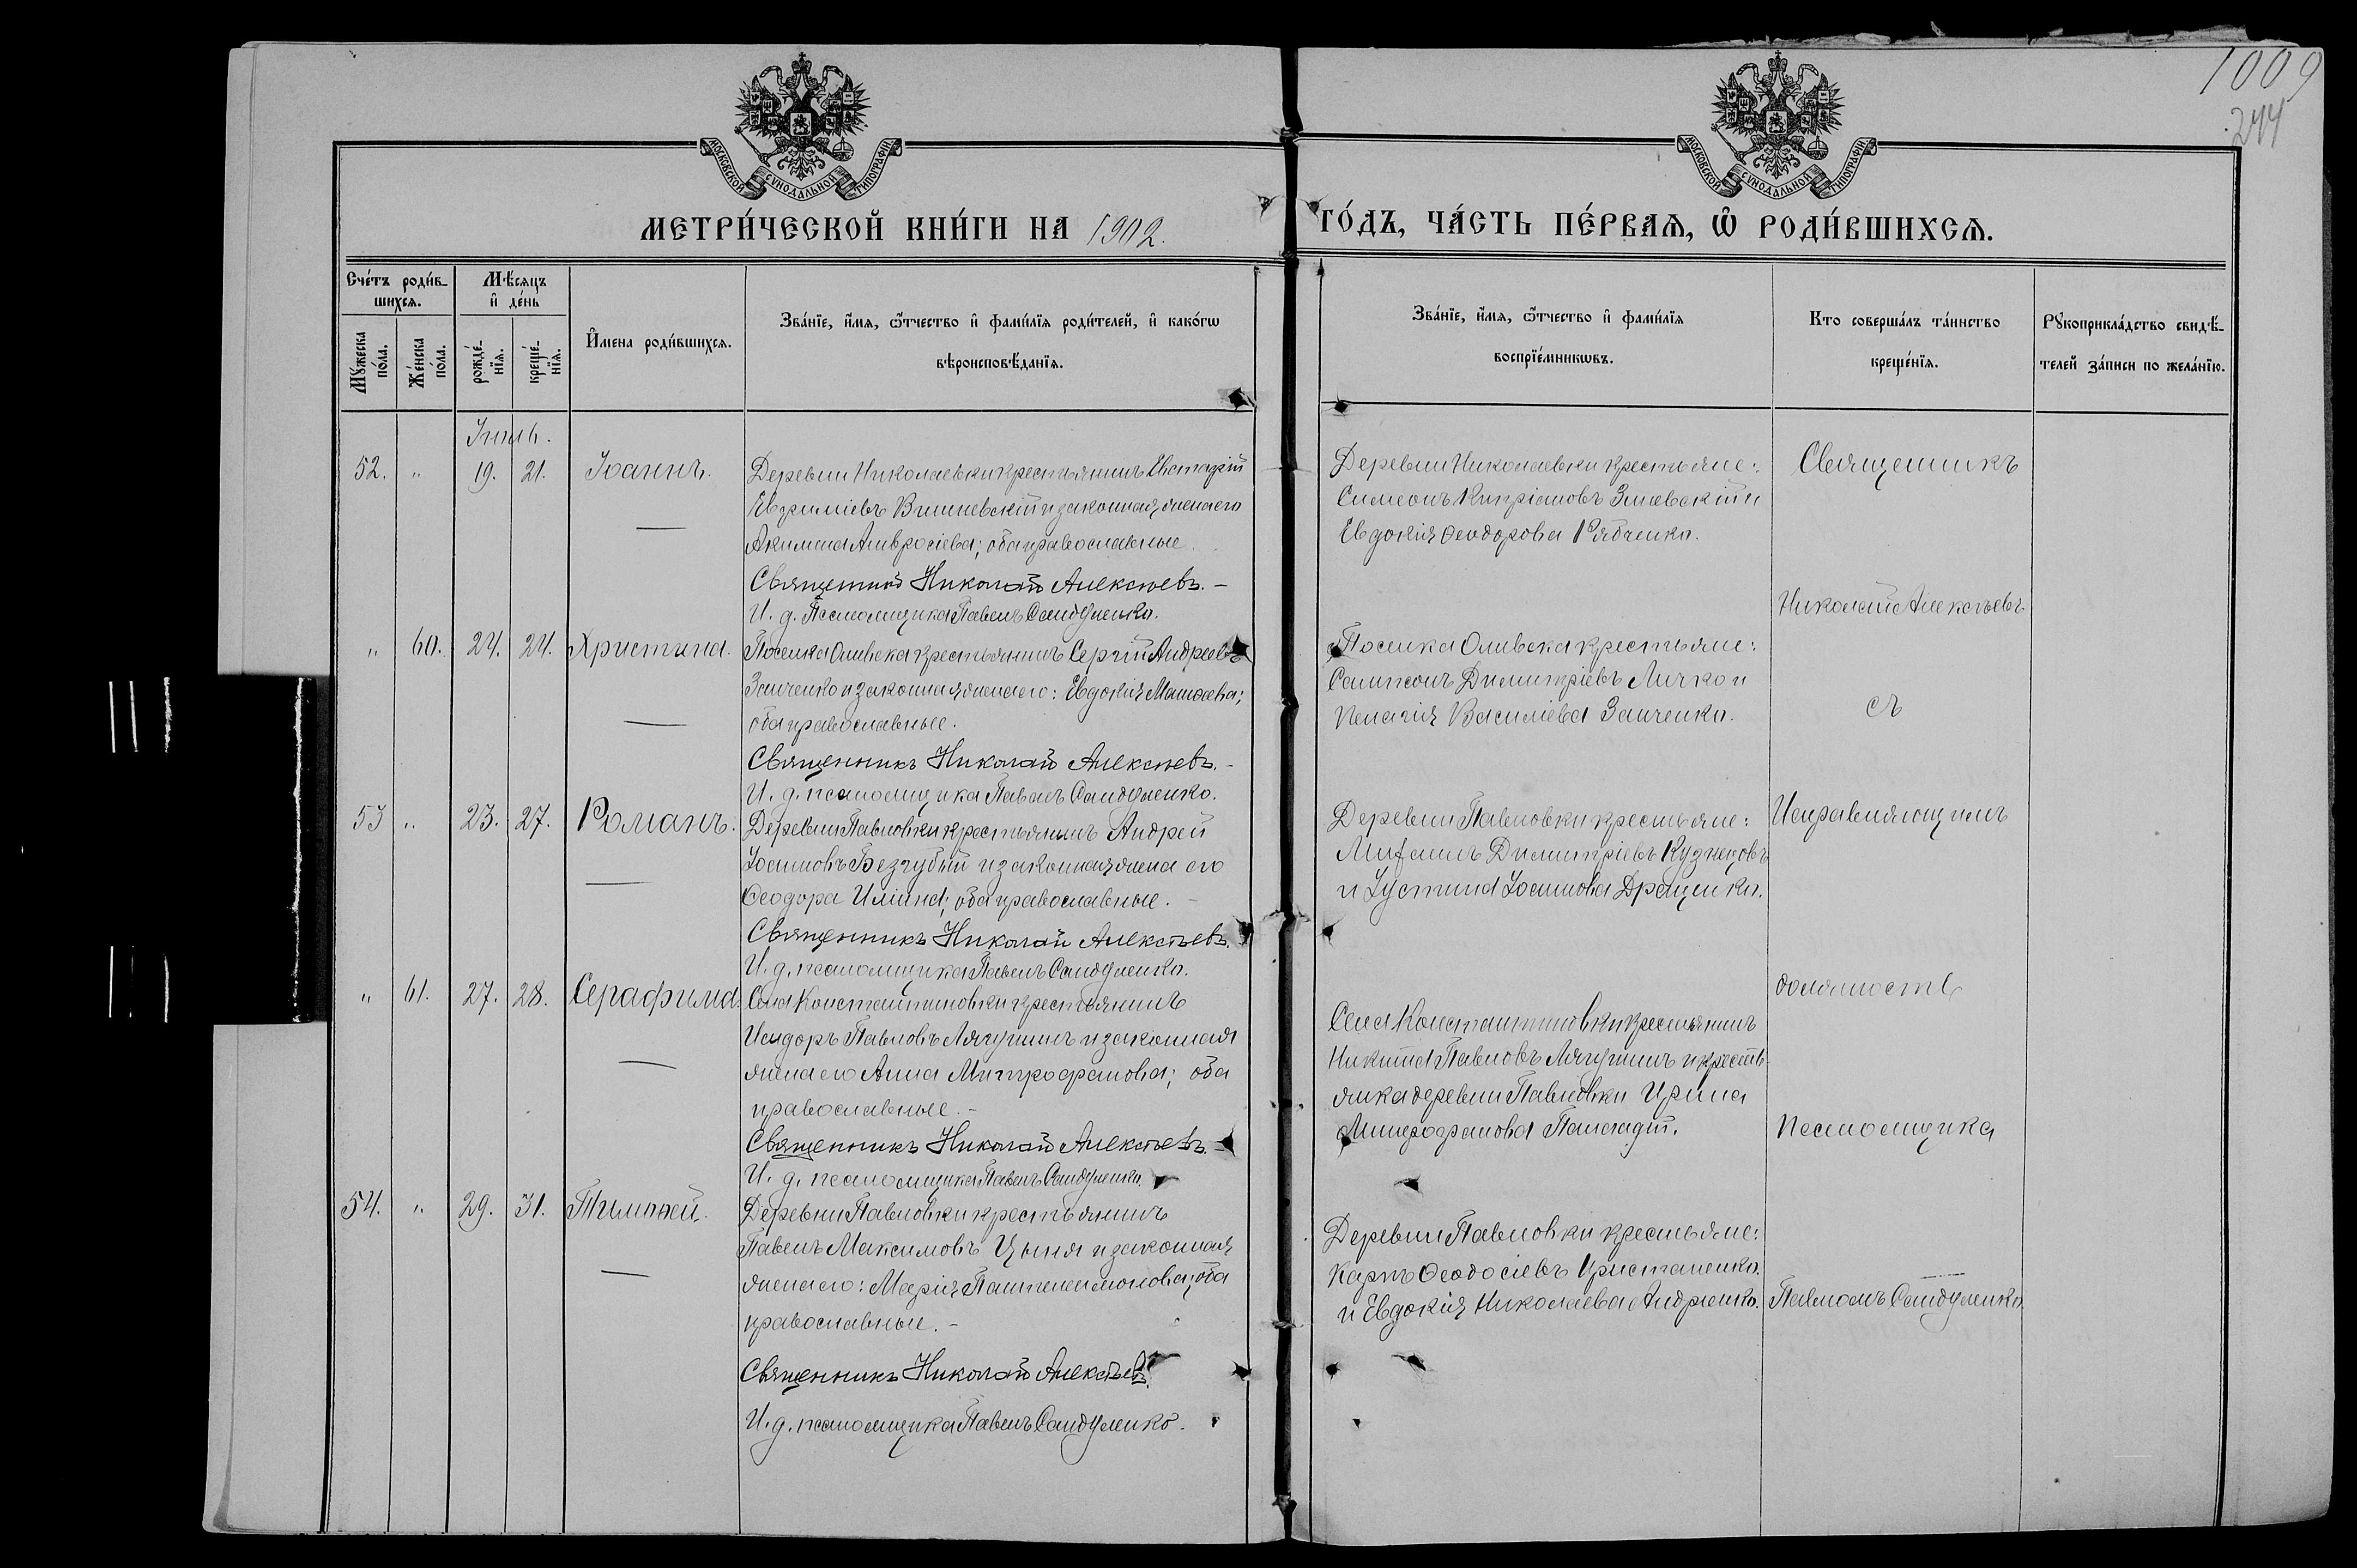 1009
244
МОСКОВСКОЙ СѴНОДАЛЬНОЙ ТИПОГРАФІИ
МОСКОВСКОЙ СѴНОДАЛЬНОЙ ТИПОГРАФІИ
МЕТРИ́ЧЕСКОЙ КНИ́ГИ НА 1902.
ГО́ДЪ, ЧА́СТЬ ПЕ́РВАѦ, Ѽ РОДИ́ВШИХСѦ.
Сче́тъ роди́в-
шихсѧ.
Мꙋ́жеска по́ла.
Же́нска по́ла.
Мѣ́сѧцъ
и҆ де́нь
рожде́нїѧ.
креще́нїѧ.
И҆мена роди́вшихсѧ.
Зва́нїе, и҆́мѧ, ѻ҆́тчество и҆ фами́лїѧ роди́телей, и҆ како́гѡ
вѣроисповѣ́данїѧ.
Зва́нїе, и҆́мѧ, ѻ҆́тчество и҆ фами́лїѧ
воспрїе́мникѡвъ.
Кто соверша́лъ та́инство
креще́нїѧ.
Рꙋкоприкла́дство свидѣ́-
телей за́писи по жела́нїю.
Іюль.
52. " 19. 21. Іоаннъ.
Деревни Николаевки крестьянинъ Евстафій
Евфиміевъ Вишневскій и законная жена его
Акилина Амвросіева; оба православные.
Священникъ Николай Алексѣевъ. –
И. д. Псаломщика Павелъ Сандуленко.
Деревни Николаевки крестьяне:
Симеонъ Кипріановъ Змиевскій и
Евдокія Ѳеодорова Рябченко.
" 60. 24. 24. Христина.
Поселка Оливска крестьянинъ Сергій Андреевъ
Занченко и законная жена его: Евдокія Матѳеева;
оба православные.
Священникъ Николай Алексѣевъ. –
И. д. псаломщика Павелъ Сандуленко.
Поселка Оливска крестьяне:
Сампсонъ Димитріевъ Личко и
Пелагія Василіева Занченко.
53 " 23. 27. Романъ.
Деревни Павловки крестьянинъ Андрей
Іоанновъ Беззубый и законная жена его
Ѳеодора Иліина; оба православные. –
Священникъ Николай Алексѣевъ.
И. д. псаломщика Павелъ Сандуленко.
Деревни Павловки крестьяне:
Михаилъ Димитріевъ Кузнецовъ
и Іустина Іоаннова Драценко.
" 61. 27. 28. Серафима.
Села Константиновки крестьянинъ
Исидоръ Павловъ Лягушинъ и законная
жена его Анна Митрофанова; оба
православные. –
Священникъ Николай Алексѣевъ. –
И. д. псаломщика Павелъ Сандуленко.
Села Константиновки крестьянинъ
Никита Павловъ Лягушинъ и кресть-
янка деревни Павловки Ирина
Митрофанова
54. " 29. 31. Тимоѳей.
Деревни Павловки крестьянинъ
Павелъ Максимовъ Цыня и законная
жена его: Марія Пантелеимонова; оба
православные. –
Священникъ Николай Алексѣевъ.
И. д. псаломщика Павелъ Сандуленко.
Деревни Павловки крестьяне:
Карпъ Ѳеодосіевъ Христаненко
и Евдокія Николаева Андрієнко.
Священникъ
Николай Алексѣевъ
съ
Исправляющимъ
должность
Псаломщика
Павломъ Сандуленко.